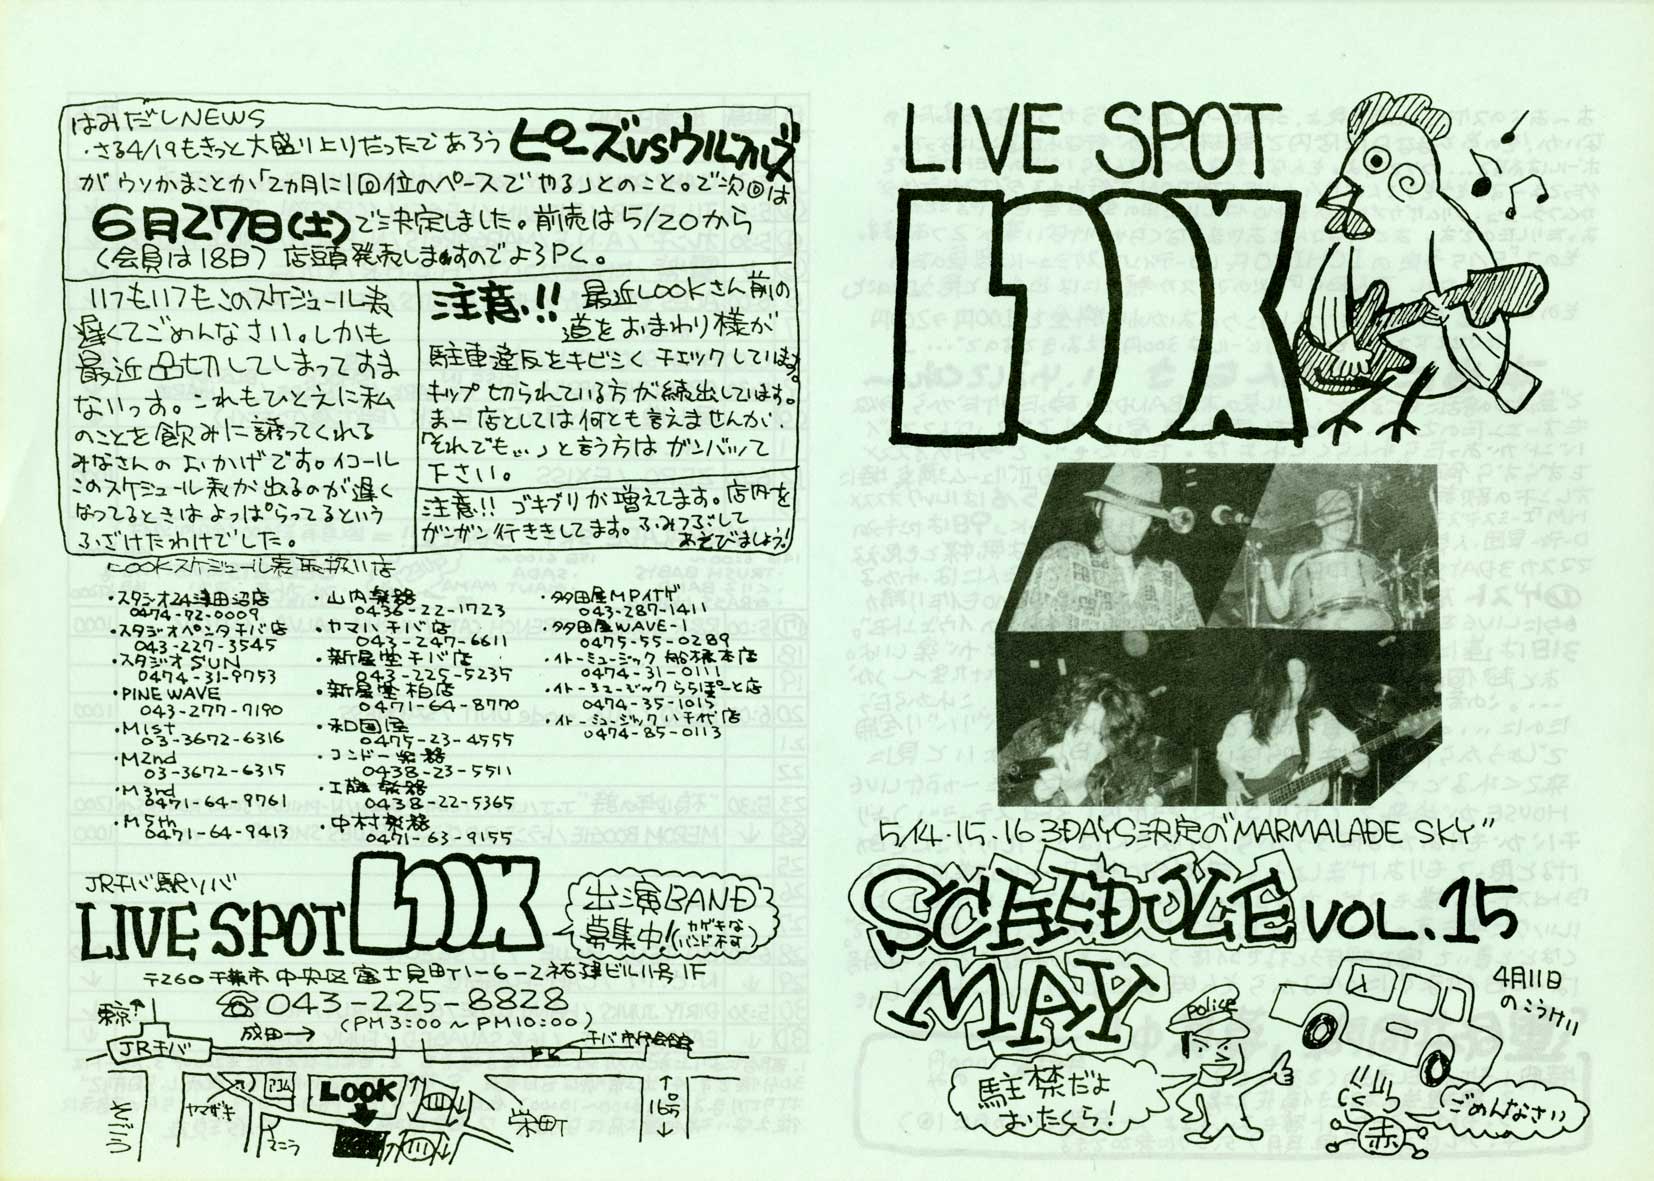 はみだしNEWS
・さる4/19もきっと大盛り上りだったであろう ピーズvsウルフルズ
がウソかまことか「2ヵ月に1回位のペースでやる」とのこと。で次回は
6月27日(土)で決定しました。前売は5/20から
(会員は18日) 店頭発表しますのでよろPく。
いつもいつもこのスケジュール表
遅くてごめんなさい。しかも
最近品切してしまってすま
ないっす。これもひとえに私
のことを飲みに誘ってくれる
みなさんのおかげです。イコール
このスケジュール表が出るのが遅く
なってるときはよっぱらってるという
ふざけたわけでした。
注意!! 最近LOOKさん前の
道をおまわり様が
駐車違反をキビシくチェックしています。
キップ切られている方が続出しています。
まー店としては何とも言えませんが、
「それでも…」と言う方はガンバッて
下さい。
注意!! ゴキブリが増えてます。店内を
ガンガン行ききしてます。ふみつぶして
あそびましょう。
LOOKスケジュール表取扱い店
・スタジオ24津田沼店
0474-72-0009
・スタジオペンタチバ店
043-227-3545
・スタジオSUN
0474-31-9753
・PINE WAVE
043-277-7190
・M1st
03-3672-6316
・M2nd
03-3672-6315
・M3rd
0471-64-9761
・M5th
0471-64-9413
・山内楽器
0436-22-1723
・ヤマハチバ店
043-247-6611
・新星堂チバ店
043-225-5235
・新星堂柏店
0471-64-8770
・和田屋
0475-23-4555
・コンドー楽器
0438-23-5511
・工藤楽器
0438-22-5365
・中村楽器
0471-63-9155
・多田屋MPイナゲ
043-287-1411
・多田屋WAVE-1
0475-55-0289
・イトーミュージック船橋本店
0474-31-0111
・イトーミュージックららぽーと店
0474-35-1015
・イトーミュージック八千代店
0474-85-0113
JRチバ駅ソバ
LIVE SPOT LOOK
出演BAND
募集中!(カゲキなバンド不可)
〒260 千葉市中央区富士見町1-6-2祐津ビル11号1F
☎043-225-8828
(PM3:00〜PM10:00)
東京↑
成田→
JRチバ
チバ市民会館
そごう
ヤマザキ
マニラ
LOOK
栄町
↑16号↓
LIVE SPOT
LOOK
5/14・15・16 3DAYS決定の"MARMALADE SKY"
SCHEDULE VOL.15
MAY
4月11日
のこうけい
police
駐禁だよ
おたくら!
ごめんなさい
赤